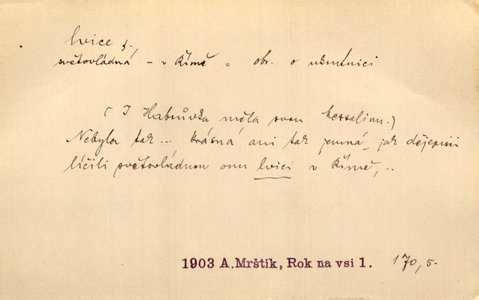 lvice f.
světovládná – v Římě „ obr. o
(I Habrůvka měla svou Messalinu.)
Nebyla tak ... krásná ani tak jemná, jak dějepisci
líčili světovládnou onu lvici v Římě, ..
1903 A.Mrštík, Rok na vsi 1. 170, 5.